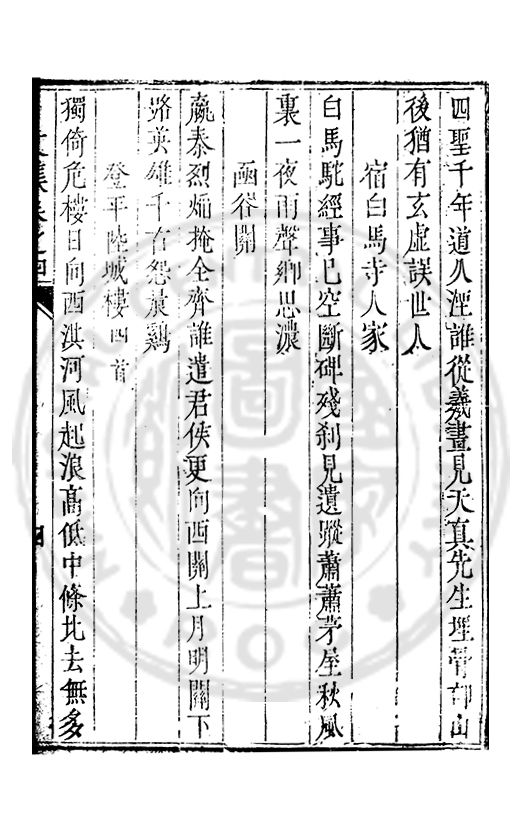 四聖千年道久湮誰從羲畫見天真先生埋骨邙山
後猶有玄虛誤世人
宿白馬寺人家
白馬駝經事已空斷碑殘刹見遺蹤蕭蕭茅屋秋風
裏一夜雨聲鄉思濃
函谷關
嬴秦烈焰掩全齊誰遣君侯更向西關上月明關下
路英雄千古怨晨鷄
登平陸城樓四首
獨倚危樓日向西洪河風起浪高低中條北去無多
文集卷之四
四